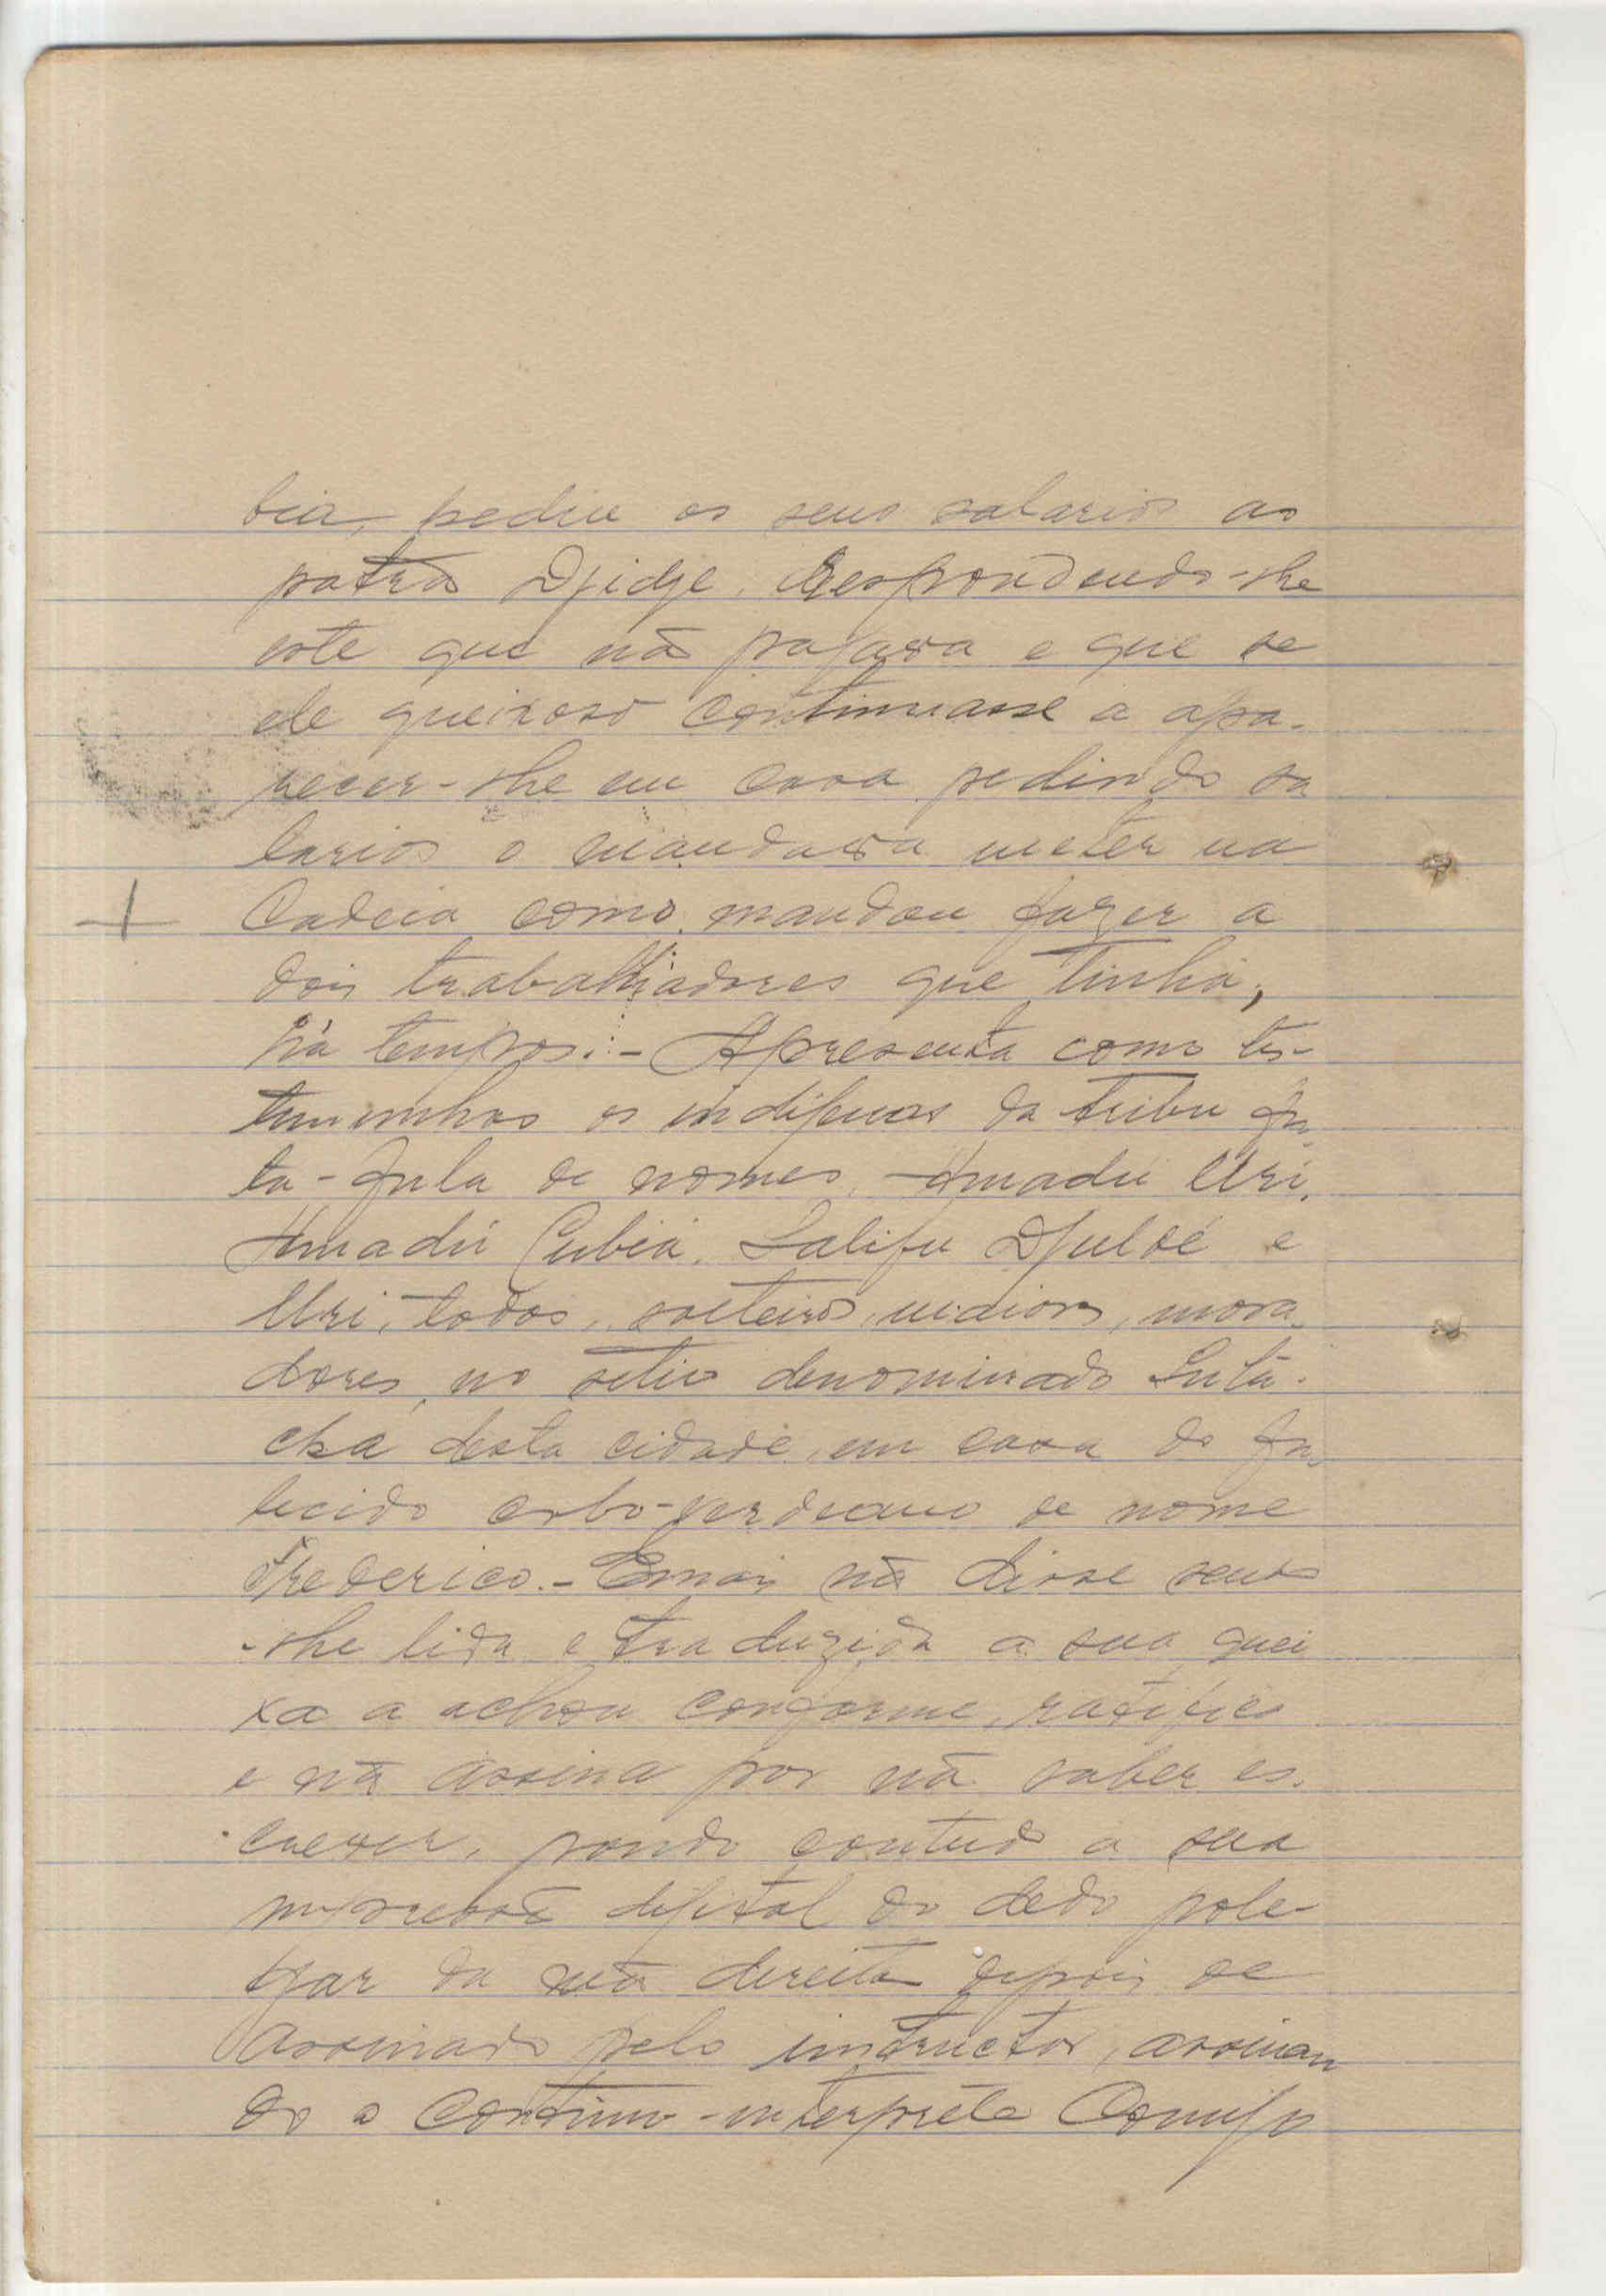 bia, pediu os seus salarios ao
patrão Djidje. Respondendo-lhe
este que não pagava e que se
ele queixoso continuasse a apa-
recer-lhe em casa pedindo sa
larios o mandava meter na
Cadeia como mandou fazer a
dois trabalhadores que tinha,
há tempos:- Apresenta como tes-
temunhas os indigenas da tribu Fu-
ta-Fula de nomes, Amadú Uri,
Amadú Cubiá, Salifu Djuldé e
Uri, todos, solteiros, maiores, mora-
dores, no sitio denominado
cha desta cidade, em casa do fa-
lecido cabo-verdeano de nome
Frederico.- E mais não disse sendo
-lhe lida e traduzida a sua quei
xa a achou conforme, ratifica
e não assina por não saber es-
crever, pondo contudo a sua
impressão digital do dedo pole-
gar da mão direita depois de
assinado pelo instructor, assinan
do o contínuo-interprete Comigo